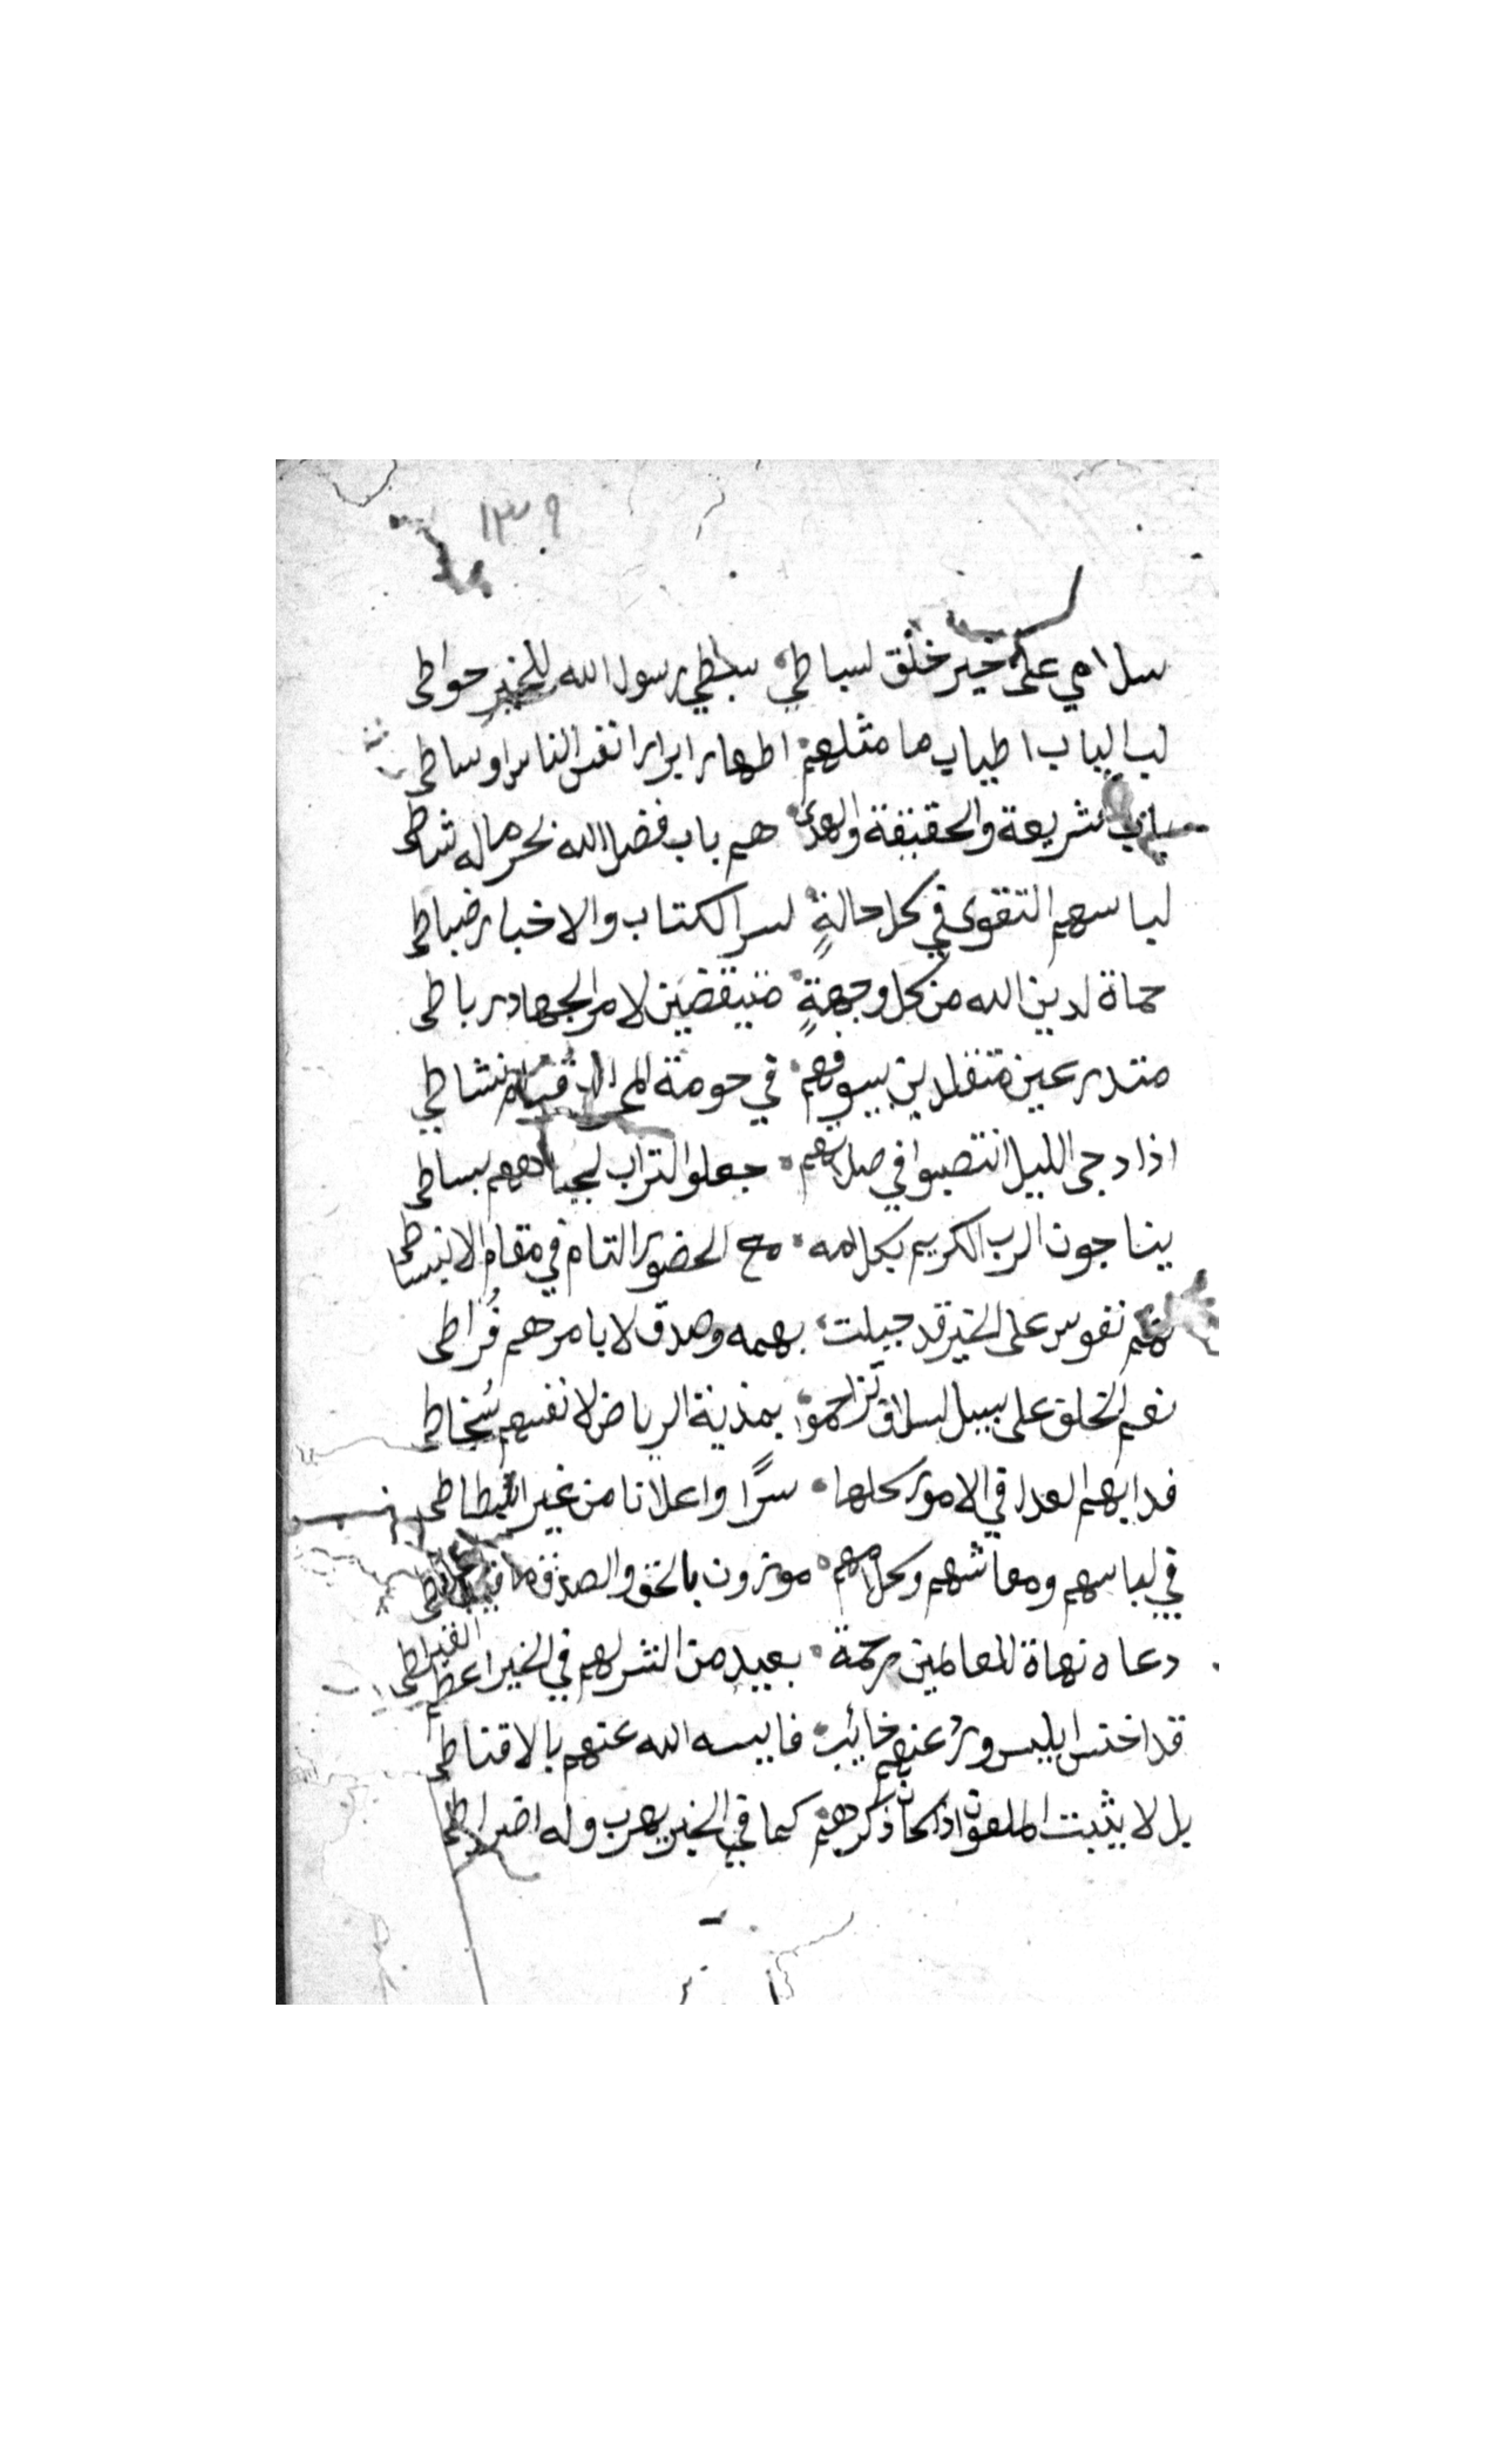 ١٣٩
سلامي على خير خلق لسباطي سبطي رسول الله للخير حواطى
لب الباب اطياب ما مثلهم اطهار ابرار انفس الناس اوساطى
شريعة والحقيقة والهدى هم باب فضل الله بحر ماله شاطى
لباسهم التقوى في كل حالةٍ لسر الكتاب والاخبار ضباطى
حماة لدين الله من كل وجهةٍ متيقضين لامر الجهاد رباطى
متدرعين متقلدين بسيوفهم في حومة نشاطي
اذا دجى الليل انتصبوا في صلاتهم جعلوا التراب لجباههم بساطى
يناجون الرب الكريم بكلامه مع الحضور التام في مقام الانبساطى
لهم نفوس على الخير قد جبلت بهمه وصدق لا بامرهم فُراطى
نعم الخلق على سبيل تزاحموا الرياض لانفسهم سُخاطى
فدابهم العدل في الامور كلها سرًا واعلانا من غير
في لباسهم ومعاشهم وكلامهم موتزون بالحق والصدق
دعاه نهاة للعالمين رحمة بعيد من الشر لهم في الخير اعظم القيراطى
قد اختس ابليس ورُد عنهم خائب فايسه الله عنهم بالاقناطى
بل لا يثبت الملعون اذا كان ذكرهم كما في الخبر يهرب وله اضراطى